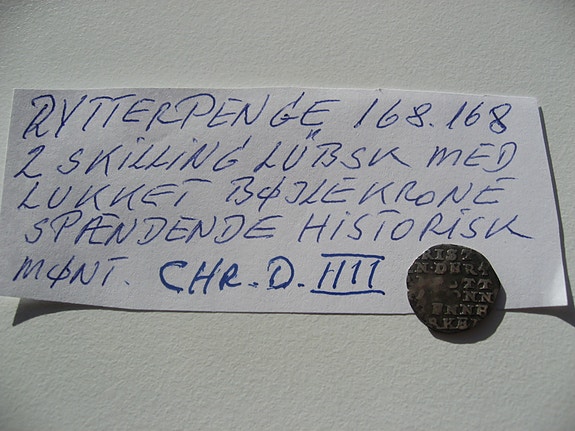 RYTTERPENGE 168.168
2 SKILLING LÜBSK MED
LUKKET BØJLEKRONE
SPÆNDENDE HISTORISK
MØNT. CHR. D. IIII
RIST
N·DHR